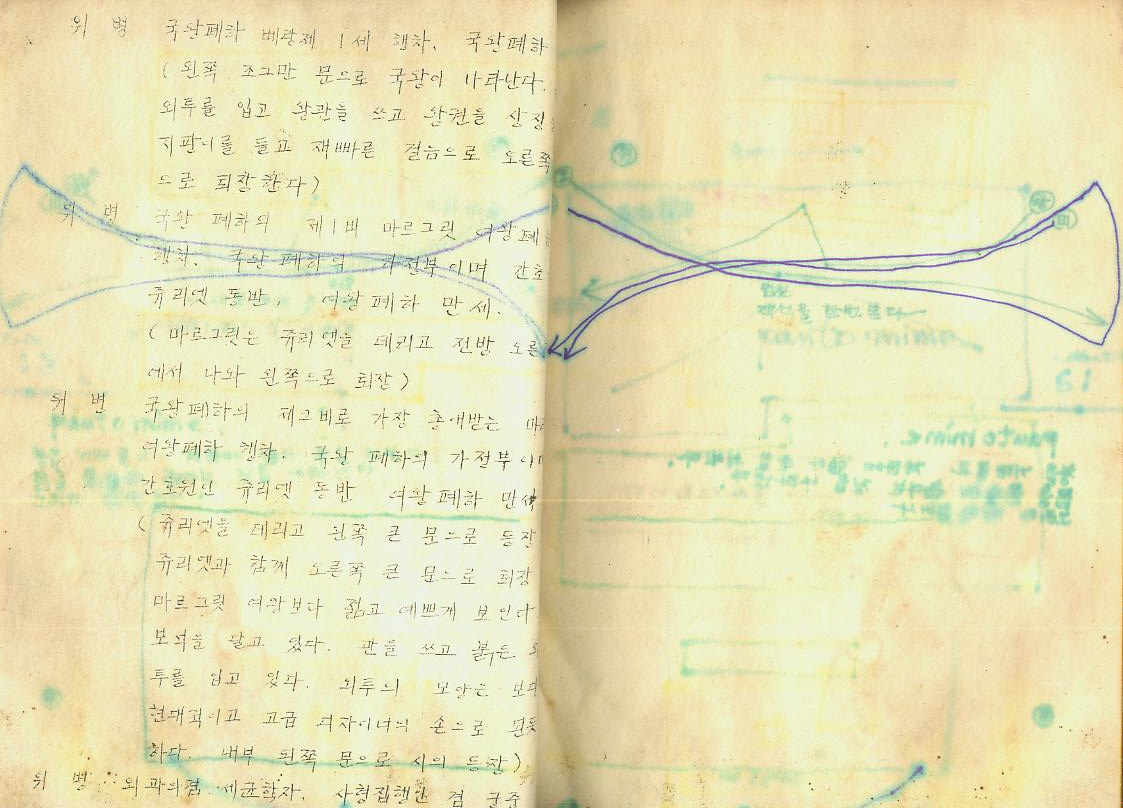 위 병 국왕폐하 베랑제 1세 행차. 국왕폐하
( 왼쪽 조그만 문으로 국왕이 나타난다.
외투를 입고 왕관을 쓰고 왕권을 상징
지팡이를 들고 재빠른 걸음으로 오른쪽
으로 퇴장한다)
위 병 국왕 폐하의 제1비 마르그릿 여왕폐하
행차. 국왕 폐하의 가정부이며 간호
쥬리엣 동반, 여왕폐하 만세.
( 마르그릿은 쥬리엣을 데리고 전방 오른
에서 나와 왼쪽으로 퇴장 )
위 병 국왕폐하의 제2비로 가장 총애받는 마
여왕폐하 행차. 국왕 폐하의 가정부이
간호원인 쥬리엣 동반 여왕폐하 만세
( 쥬리엣을 데리고 왼쪽 큰 문으로 등장
쥬리엣과 함께 오른쪽 큰 문으로 퇴장
마르그릿 여왕보다 젊고 예쁘게 보인다
보석을 달고 있다. 관을 쓰고 붉은 외
투를 입고 있다. 외투의 모양은 보다
현대적이고 고급 디자이너의 손으로 된듯
하다. 내부 왼쪽 문으로 시의 등장 )
위 병 외과의겸 세균학자. 사형집행인 겸 궁중
pantomime